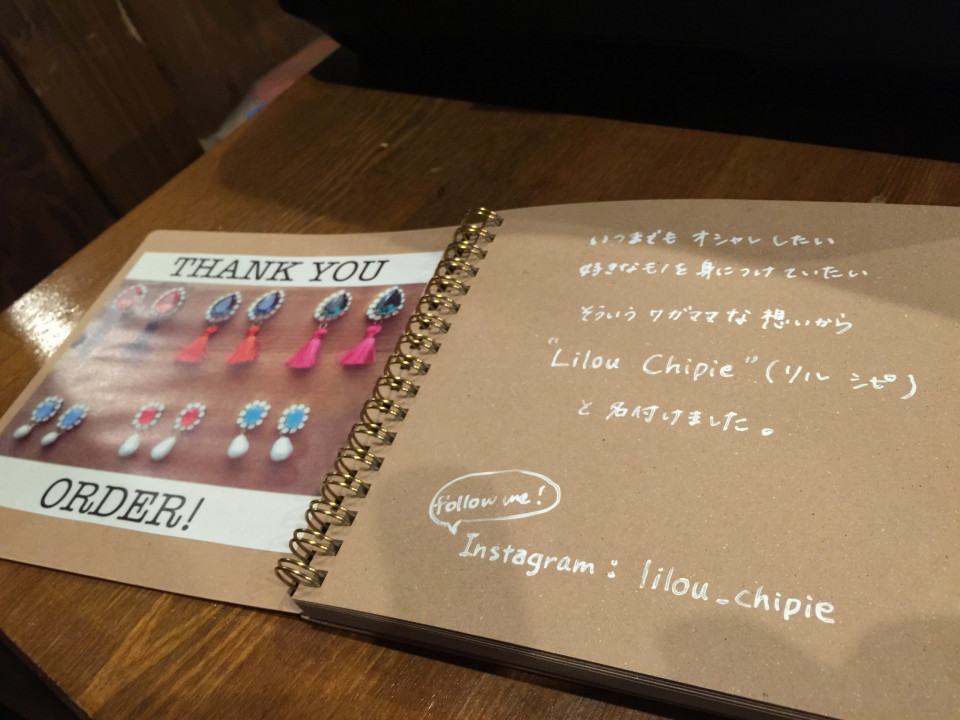 THANK YOU
ORDER!
いつまでも オシャレ したい
好きなモノを 身につけていたい
そういう ワガママな 想いから
"Lilou Chipie" (リル シピ)
と 名付けました。
follow me!
Instagram: lilou_chipie